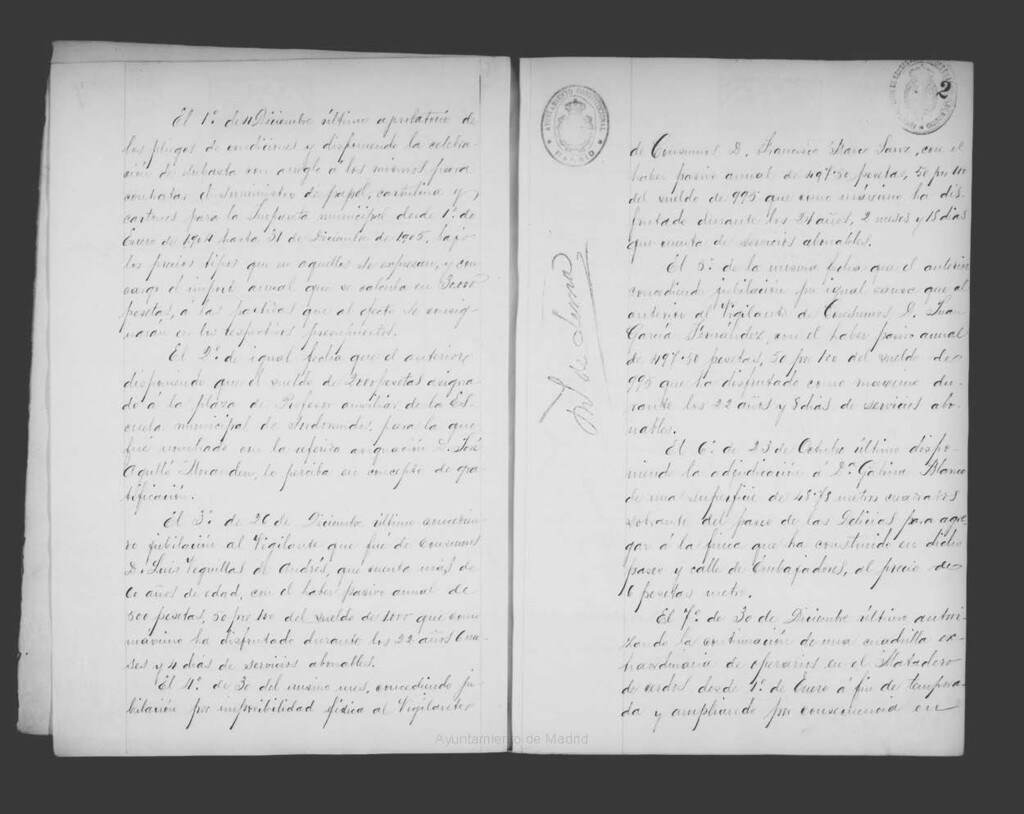 El 1º de 11 Diciembre último aprobatorio de
los pliegos de condiciones y disponiendo la celebra-
ción de subasta con arreglo á los mismos para
contratar el suministro de papel, cartulina y
cartones para la Imprenta municipal desde 1º de
Enero de 1904 hasta 31 de Diciembre de 1905, bajo
los precios tipos que en aquellos se expresan, y con
cargo el importe anual que se calcula en 30000
pesetas, á las partidas que al efecto se consig-
narán en los respectivos presupuestos.
El 2º de igual fecha que el anterior
disponiendo que el sueldo de 2000 pesetas asigna-
do á la plaza de Profesor auxiliar de la Es-
cuela municipal de Sordomudos, para la que
fué nombrado con la referida asignación D. José
Agulló, lo perciba en concepto de gra-
tificación.
El 3º de 26 de Diciembre último concedien-
do jubilación al Vigilante que fué de Consumos
D. Luis Yeguillas de Andrés, que cuenta más de
60 años de edad, con el haber pasivo anual de
500 pesetas, 50 por 100 del sueldo de 1000 que como
máximo ha disfrutado durante los 22 años 6 me-
ses y 4 días de servicios abonables.
El 4º de 30 del mismo mes, concediendo ju-
bilación por imposibilidad física al Vigilante
AYUNTAMIENTO CONSTITUCIONAL
MADRID
de Lema
2
de Consumos D. Francisco Sanz, con el
haber pasivo anual de 497'50 pesetas, 50 por 100
del sueldo de 995 que como máximo ha dis-
frutado durante los 24 años, 2 meses y 15 días
que cuenta de servicios abonables.
El 5º de la misma fecha que el anterior
concediendo jubilación por igual causa que al
anterior al Vigilante de Consumos D. Juan
García Fernández, con el haber pasivo anual
de 497'50 pesetas, 50 por 100 del sueldo de
995 que ha disfrutado como máximo du-
rante los 22 años y 8 días de servicios abo-
nables.
El 6º de 23 de Octubre último dispo-
niendo la adjudicación á Dª Gabina Blanco
de una superficie de 48'78 metros cuadrados
sobrante del paseo de las Delicias para agre-
gar á la finca que ha construido en dicho
paseo y calle de Embajadores, al precio de
6 pesetas metro.
El 7º de 30 de Diciembre último autori-
zando la continuación de una cuadrilla ex-
traordinaria de operarios en el Matadero
de cerdos desde 1º de Enero á fin de tempora-
da y ampliando por consecuencia en
Ayuntamiento de Madrid